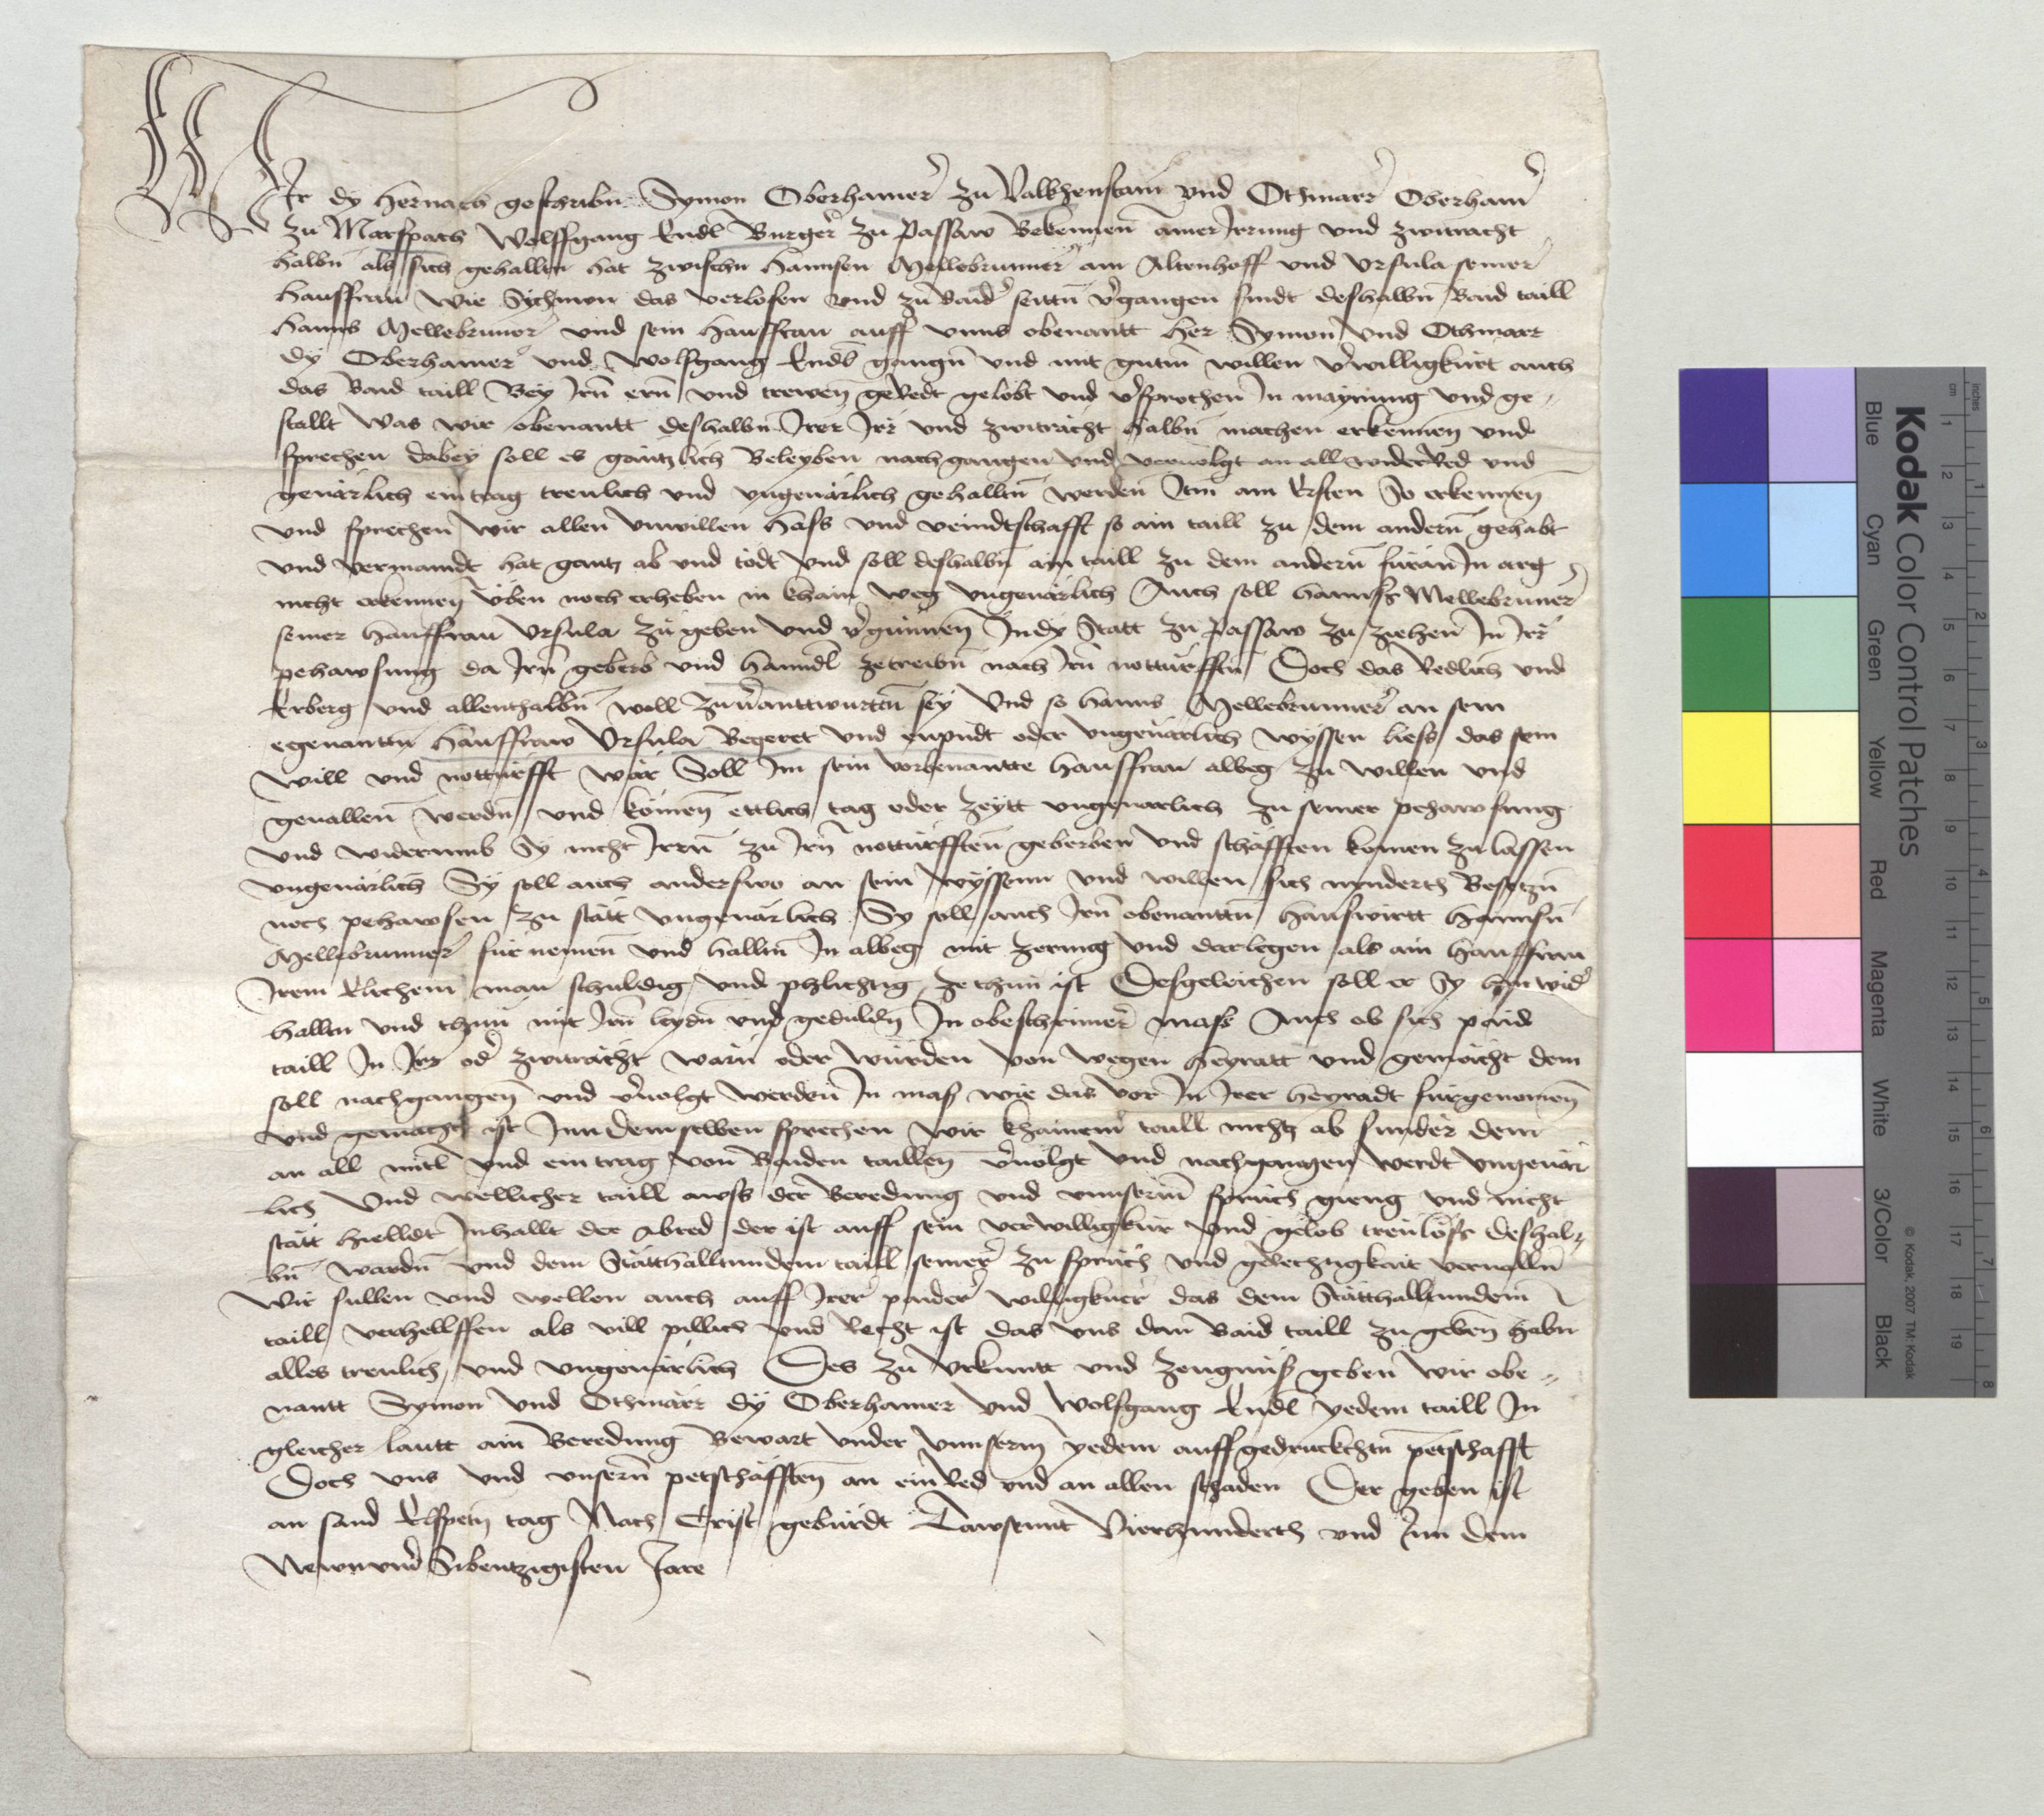 WIr dy hernach geschribn Symon Oberhaimer zu Valkhenstain vnd Othmarr Oberhaimer
zu Marspach Wolffgang Endl Burger zu Passaw Bekennen ainer Irrung und zwitracht
halbn als sich gehalltn hat zwischn Hannsen Mellebrunner am Altenhoff vnd Vrsula seiner
hausfrau wie Sych von das verlosen vnd zu baider seittn vergangen sindt deshalbn Baid taill
Hanns Mellebruner vnd sein hausfrau auff vnns obenantt her Symon vnd Othmarr
dy Oberhaimer vnd Wolfgang Endl gangn vnd mit gutm willen verwilligkürt auch
das Baid taill Bey Irn ern vnd trewen geRedt gelobt vnd versprochen In maynung vnd ge-
stallt Was wir obenantt deshalbn Irer Irr vnd zwitracht halbn machen erkennen vnd
sprechen dabey soll es gantzlich Beleyben nachgangen vnd veruolgt an all widerRed vnd
geuärlich eintrag treulich vnd vngeuärlich gehalltn werden Itm am Ersten So erkennen
vnd sprechen wir allen vnwillen Hass vnd veindtschafft so ain taill zu dem andern gehabt
vnd vermaindt hat gantz ab vnd todt Vnd soll deshalbn ain taill zu dem andern füran In arg
nicht erkennen üben noch erheben in khain weg vngeuärlich Auch soll Hannss Mellebruner
seiner hausfrau Vrsula zu geben vnd vergunnen In dy Statt zu Passaw zu ziehen In Irr
pehawsung da Irn geberb vnd hanndl zetreibn nach Irn notturfftn Doch das Redlich vnd
Erberg vnd allenthalbn woll zuuerantwurttn sey Vnd so Hanns Mellebrunner an sein
egenanttn hausfraw Vrsula Begeret vnd enpudt oder vngeuärlich wyssen liess das sein
will vnd notturfft wär Soll Im sein vorbenantte hausfrau albeg zu willen vnd
geuallen werdn vnd komen ettlich tag oder zeytt vngeuärlich zu seiner pehawsung
vnd widerumb Sy nicht Irrn zu Irn notturfften geberben vnd schäfften komen zu lassen
vngeuärlich Sy soll auch anderswo an sein wyssenn vnd willen sich nynderth Besetzn
noch pehawsen zu stätt vngeuärlich Sy soll auch Irn obenanttn hauswirtt Hannsn
Mellebrunner für nemen vnd halltn In albeg mit zerung vnd darlegen als ain hausfrau
Irem Elichem man schuldig vnd phlichtig ze thun ist Desgeleichen soll er Sy hinwider
halltn vnd thun mit Irn leydn vnd geduldn In obeschrimer mass Auch ob sich paid
taill In Irr oder zwitracht wärn oder wurden von wegen heyratt vnd gemächt dem
soll nachgangen vnd veruolgt werden In mass wie das vor In Irer heyradt fürgenomen
vnd gemacht ist Inn demselben sprechen wir khainem taill nichtz ab sunder dem
an all mitl vnd eintrag von Baiden taillen veruolgt vnd nachgangen werdt vngeuär
lich Vnd wellicher taill awss der Beredung vnd vnnserm spruch gieng vnd nicht
stätt hielldt Inhallt der Abred der ist auff sein verwilligkür vnd gelob treulöss deshal-
bn wordn vnd dem Stätthalltundem taill seiner zu spruch vnd gerechtigkait veruallen
Wir sullen vnd wellen auch auff Irer paider willigkuer das dem Stätthalltundem
taill verhellffen als vill pillich vnd Recht ist das vns dan Baid taill zu geben habn
alles treulich vnd vngeuärlich Des zu vrkuntt vnd zeugnuss geben wir obe-
nantt Symon vnd Othmarr dy Oberhaimer vnd Wolfgang Endl yedem taill In
gleicher lautt ain Beredung Bewart vnder vnnserm yedem auffgedruckchtn petschafft
Doch vns vnd vnsern petschäfften an ein Red vnd an allen schaden Der geben ist
an sand Elspetn tag Nach Crist geburdt Tawsennt Vierhunderth vnd Inn dem
Newnvnd Sibentzigisten Jare
Kodak Color Control Patches
Blue Cyan Green Yellow Red Magenta White 3/Color Black
© Kodak, 2007 TM: Kodak
cm 1 2 3 4 5 6 7 8 9 10 11 12 13 14 15 16 17 18 19
inches 1 2 3 4 5 6 7 8